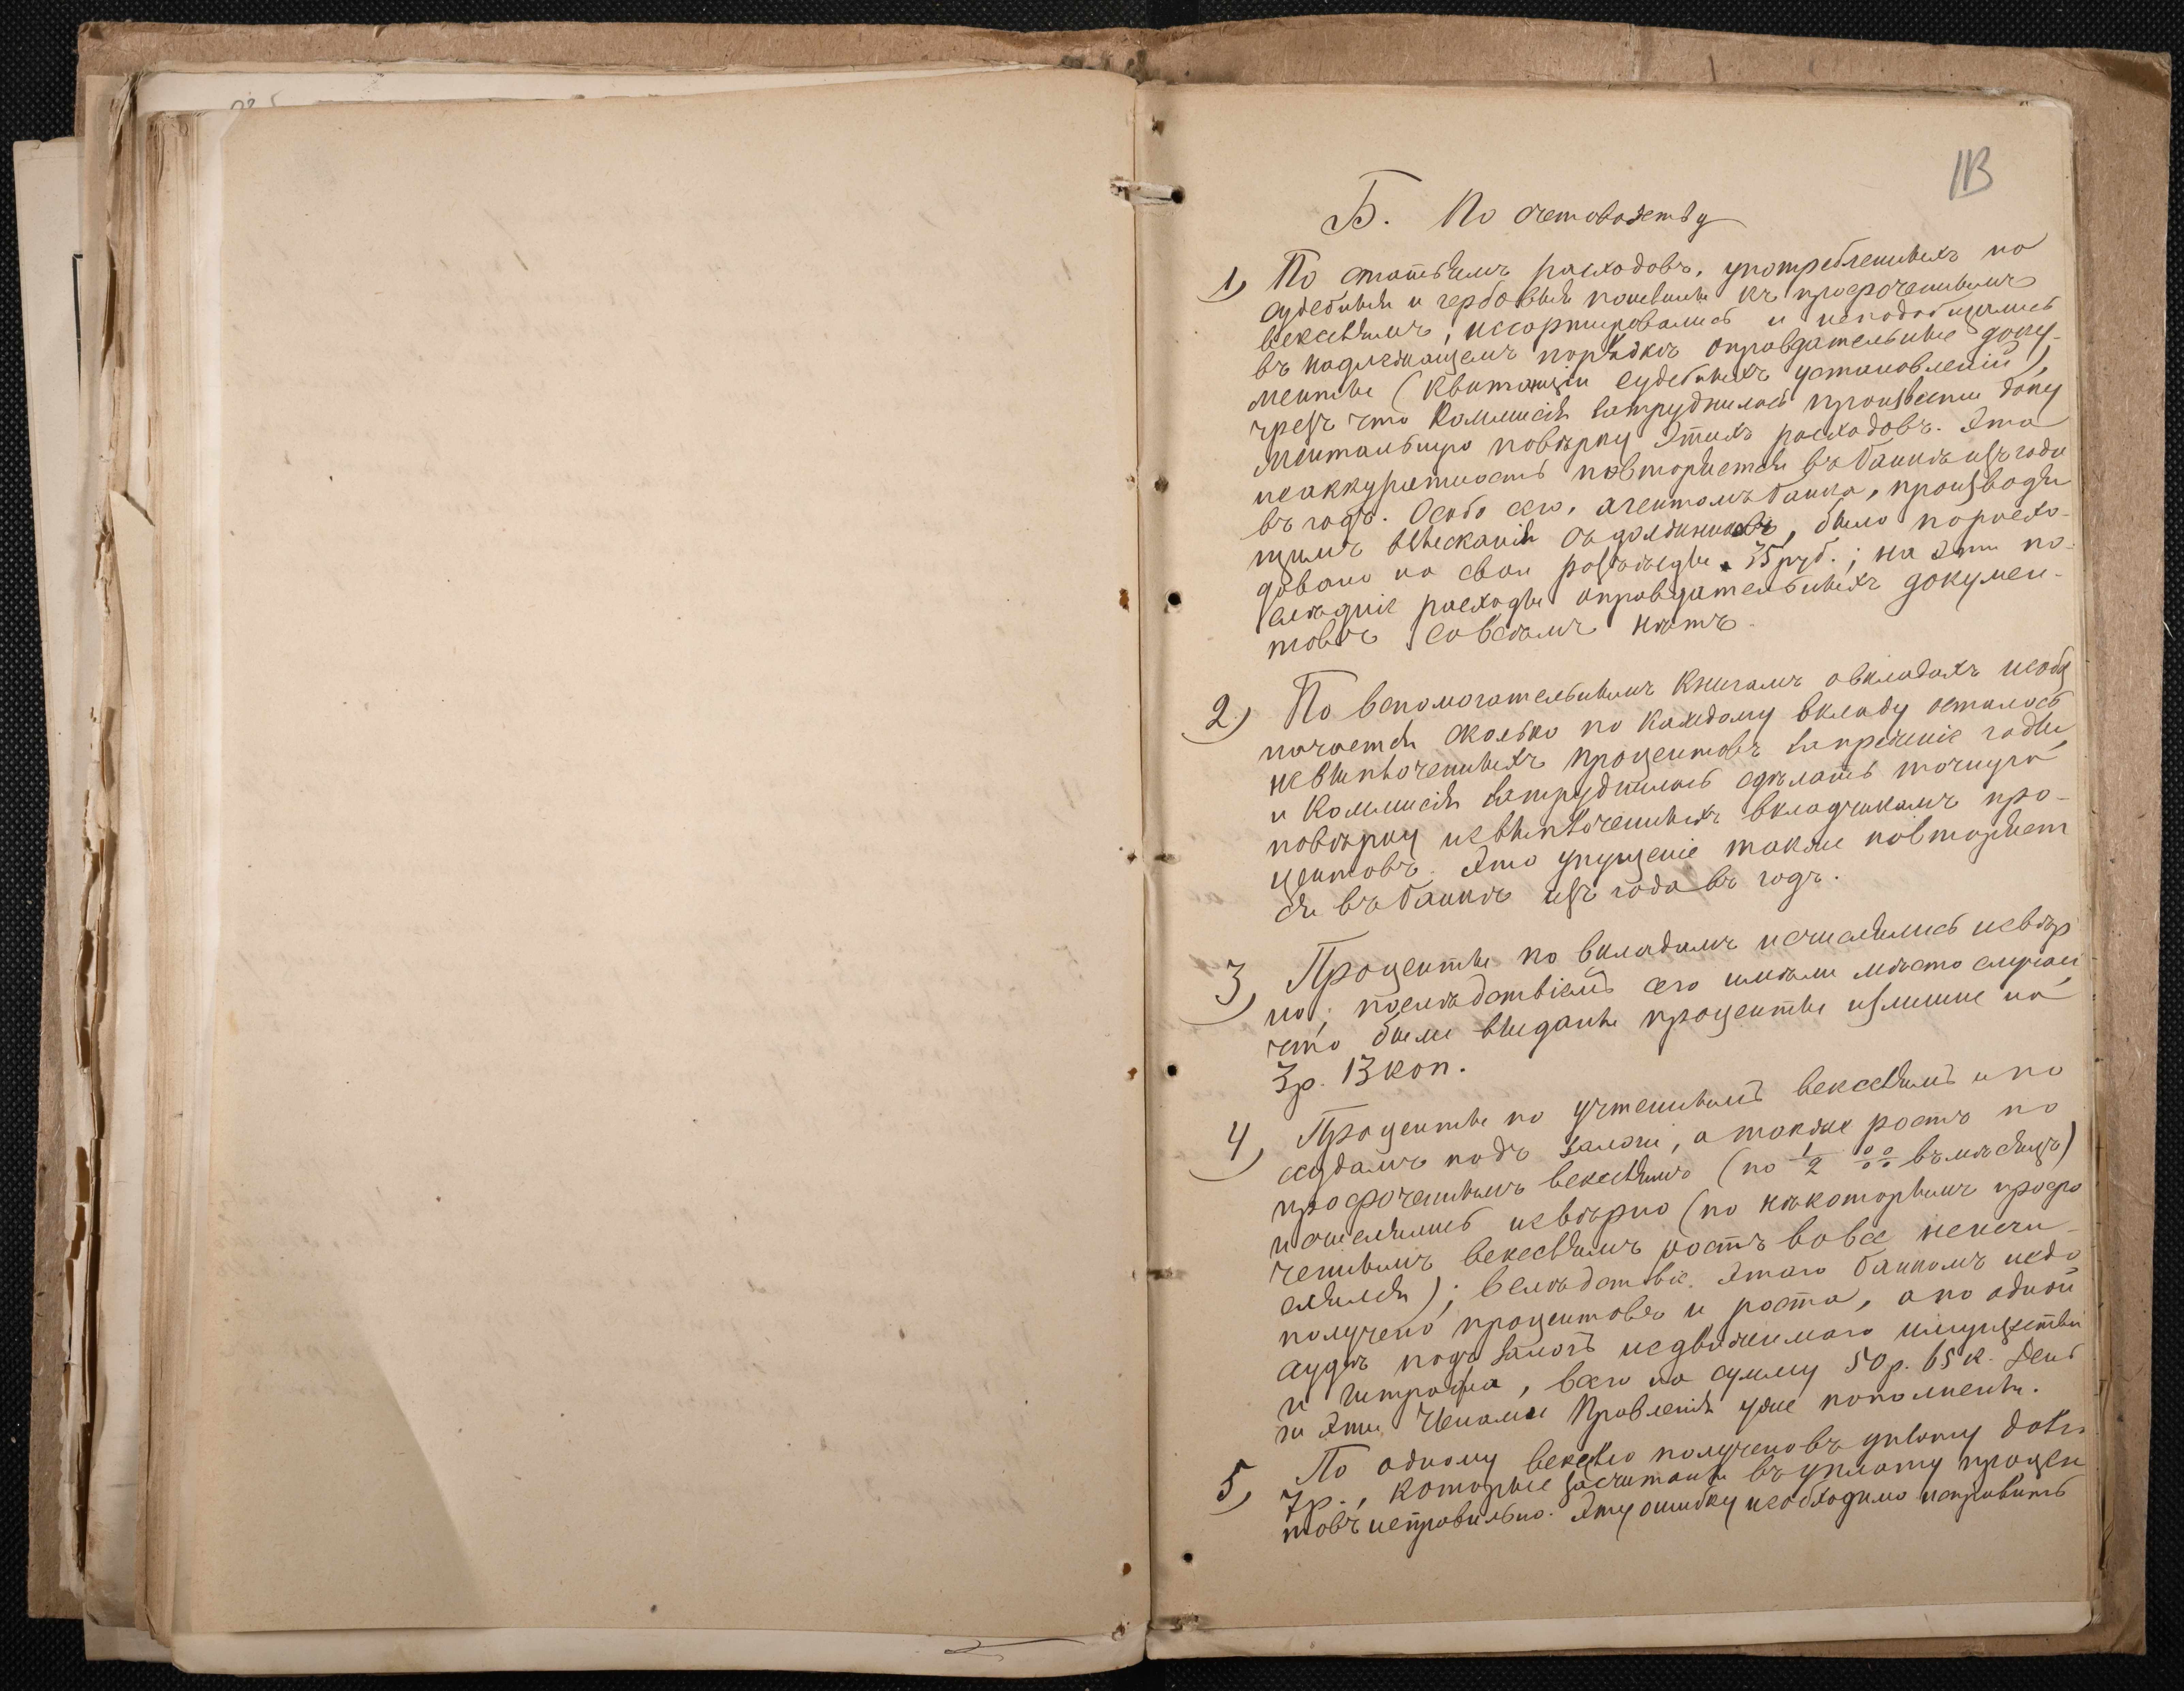 113
Б. По счетоводству
1) По статьямъ расходовъ, употребленныхъ на
судебныя и гербовыя пошлины къ просроченнымъ
векселямъ, несортировались и неподобщались
въ надлежащемъ порядкѣ оправдательные доку-
менты (квитанціи судебныхъ установленій),
чрезъ что Коммисія затруднилась произвести доку
ментальную повѣрку этихъ расходовъ. Эта
неаккуратность повторяется въ банкѣ изъ года
въ годъ. Особо сего, агентомъ банка, производя
щимъ взысканія съ должниковъ, было израсхо-
довано на свои разъѣзды 35 руб.; на эти по-
слѣдніе расходы оправдательныхъ докумен-
товъ совсѣмъ нѣтъ.
2) По вспомогательнымъ книгамъ о вкладахъ необоз
начается сколько по каждому вкладу осталось
невыплоченныхъ процентовъ за прежніе годы
и Коммисія затруднилась сдѣлать точную
повѣрку невыплоченныхъ вкладчикамъ про-
центовъ. Это упущеніе также повторяет
ся въ банкѣ изъ года въ годъ.
3) Проценты по вкладамъ исчислялись невѣр
но; послѣдствіемъ сего имѣли мѣсто случаи,
что были выданы проценты излишне на
3 р. 13 коп.
4) Проценты по учтеннымъ векселямъ и по
ссудамъ подъ залоги, а также ростъ по
просроченнымъ векселямъ (по 1/2 %% въ мѣсяцъ)
исчислялись невѣрно (по нѣкоторымъ просро
ченнымъ векселямъ ростъ вовсе неисчи-
слялся); вслѣдствіе этаго банкомъ недо
получено процентовъ и роста, а по одной
ссудѣ подъ залогъ недвижимаго имущества
и штрафа, всего на сумму 50 р. 65 к. День
ги эти Членами Правленія уже пополнены.
5) По одному векселю получено въ уплату долга
7 р., которые засчитаны въ уплату процен
товъ неправильно. Эту ошибку необходимо исправить